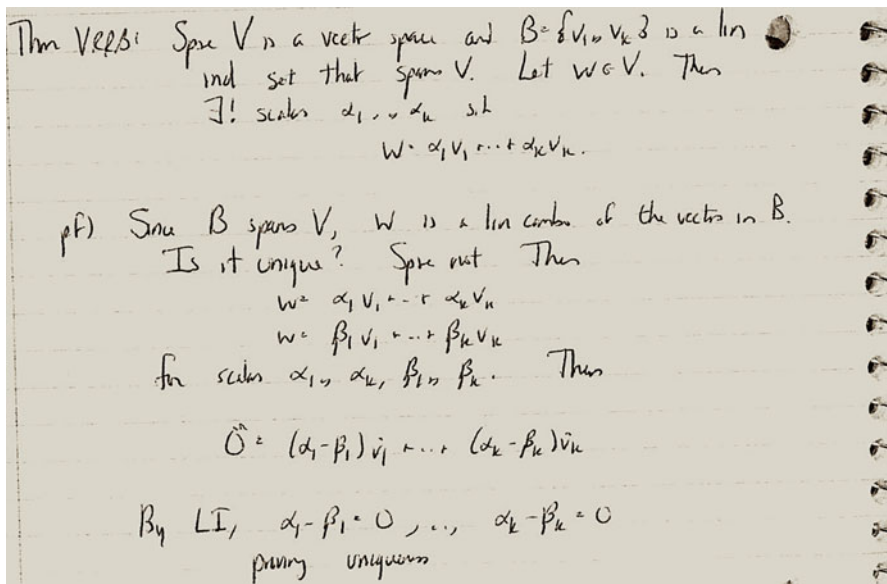 Thm VRRB: Spse V is a vector space and B = {v₁,, vₖ} is a lin
ind set that spans V. Let w ∈ V. Then
∃! scalars α₁,.,, αₖ s.t
w = α₁v₁ + ··· + αₖvₖ.
pf) Since B spans V, w is a lin combo of the vectors in B.
Is it unique? Spse not Then
w = α₁v₁ + ··· + αₖvₖ
w = β₁v₁ + ··· + βₖvₖ
for scalars α₁,, αₖ, β₁,, βₖ. Then
0⃗ = (α₁-β₁)v⃗₁ + ··· + (αₖ-βₖ)v⃗ₖ
By LI, α₁-β₁ = 0, .., αₖ-βₖ = 0
proving uniqueness